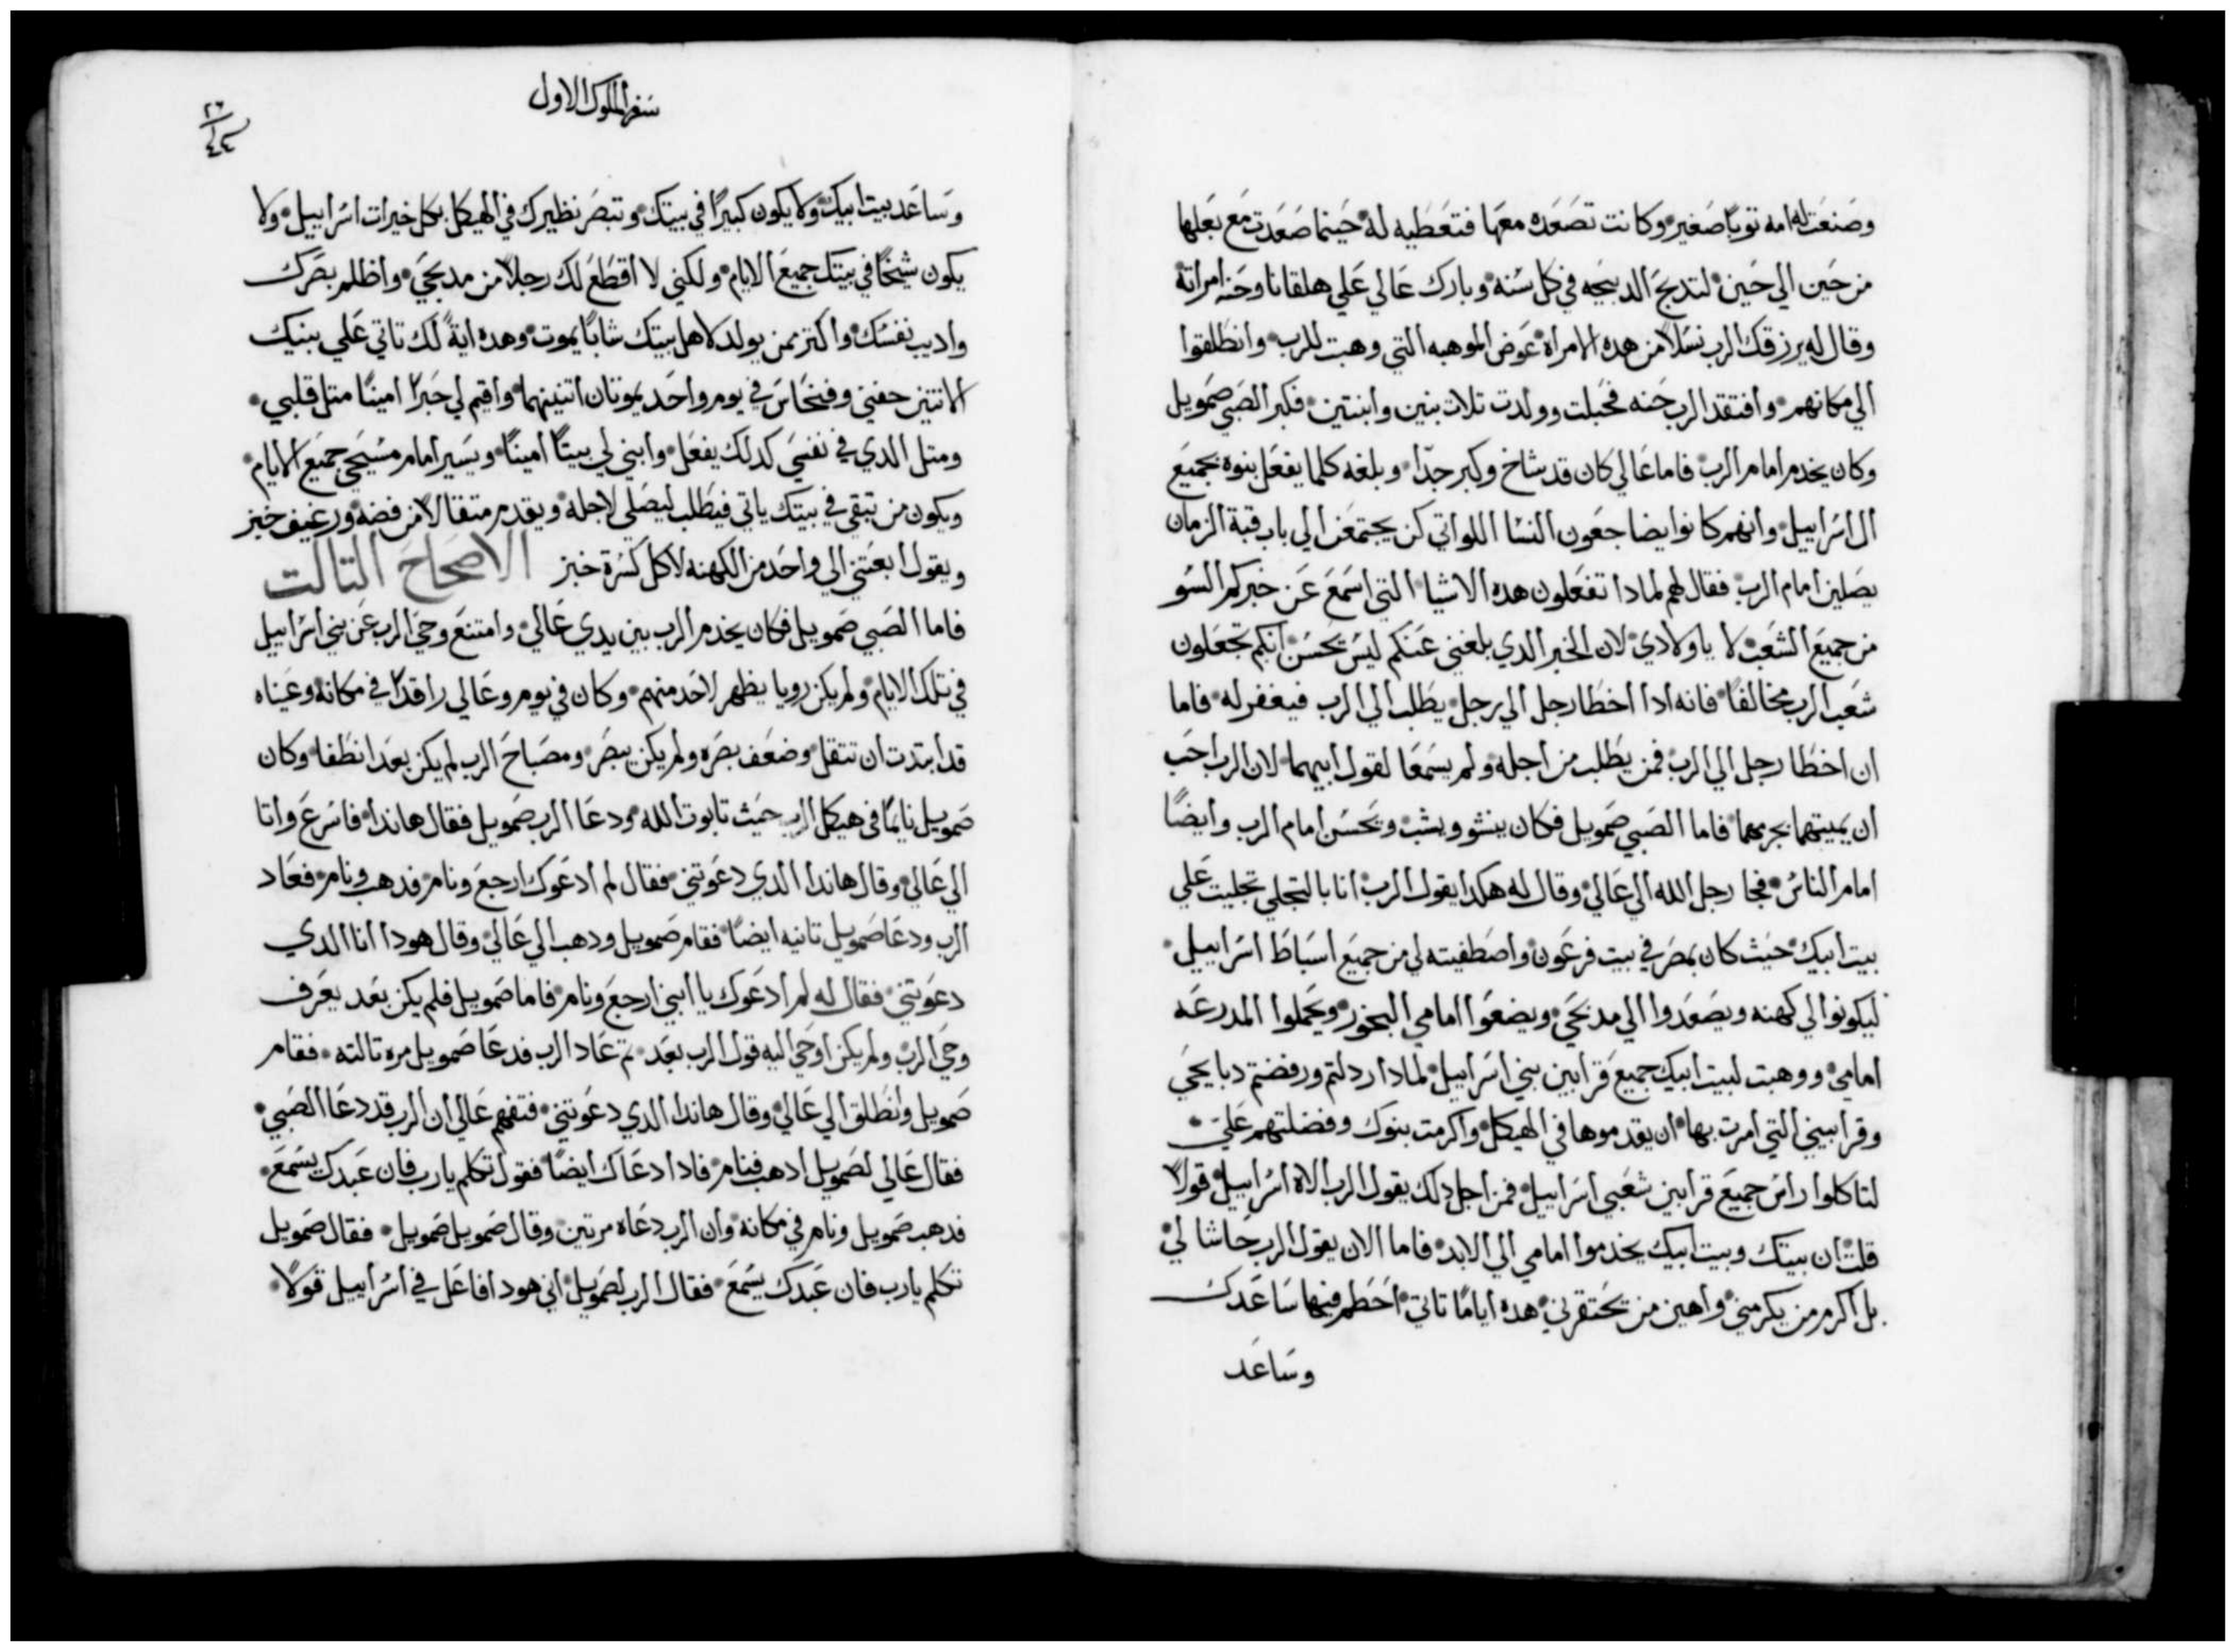 وصنعت له امه توبًا صغير وكانت تصعده معها فتعطيه له حينما صعدت مع بعلها
من حين الي حين لتدبح الدبيحه في كل سنه وبارك عالي علي هلقانا وحنه امراته
وقال له يرزقك الرب نسلًا من هده الامراه عوض الموهبه التي وهبت للرب وانطلقوا
الي مكانهم وافتقد الرب حنه فحبلت وولدت تلات بنين وابنتين فكبر الصبي صمويل
وكان يخدم امام الرب فاما عالي كان قد شاخ وكبر جدًا وبلغه كلما يفعل بنوه بجميع
ال اسراييل وانهم كانوا يضاجعون النسا اللواتي كن يجتمعن الي باب قبة الزمان
يصلين امام الرب فقال لهم لمادا تفعلون هده الاشيا التي اسمع عن خبركم السو
من جميع الشعب لا ياولادي لان الخبر الدي بلغني عنكم ليس يحسن انكم تجعلون
شعب الرب مخالفًا فانه ادا اخطا رجل الي رجل يطلب الي الرب فيغفر له فاما
ان اخطا رجل الي الرب فمن يطلب من اجله ولم يسمعا لقول ابيهما لان الرب احب
ان يميتهما بجرمهما فاما الصبي صمويل فكان ينشو ويشب ويحسن امام الرب وايضًا
امام الناس فجا رجل الله الي عالي وقال له هكدا يقول الرب انا بالتجلي تجليت علي
بيت ابيك حيث كان بمصر في بيت فرعون واصطفيته لي من جميع اسباط اسراييل
ليكونوا لي كهنه ويصعدوا الي مدبحي ويضعوا امامي البخور ويحملوا المدرعه
امامي ووهبت لبيت ابيك جميع قرابين بني اسراييل لمادا ردلتم ورفضتم دبايحي
وقرابيني التي امرت بها ان يقدموها في الهيكل واكرمت بنوك وفضلتهم علي
لتاكلوا راس جميع قرابين شعبي اسراييل فمن اجل دلك يقول الرب الاه اسراييل قولًا
قلت ان بيتك وبيت ابيك يخدموا امامي الي الابد فاما الان يقول الرب حاشا لي
بل اكرم من يكرمني واهين من يحتقرني هده ايامًا تاتي احطم فيها ساعدك
وساعد
سفر الملوك الاول
وساعد بيت ابيك ولا يكون كبيرًا في بيتك وتبصر نظيرك في الهيكل بكل خيرات اسراييل ولا
يكون شيخًا في بيتك جميع الايام ولكني لا اقطع لك رجلًا من مدبحي واظلم بصرك
واديب نفسك واكتر ممن يولد لاهل بيتك شابًا يموت وهده ايةً لك تاتي علي بنيك
الاتنين حفني وفنحاس في يوم واحد يموتان اتنينهما واقيم لي حبرًا امينًا متل قلبي
ومتل الدي في نفسي كدلك يفعل وابني لي بيتًا امينًا ويسير امام مسيحي جميع الايام
ويكون من تبقي في بيتك ياتي فيطلب ليصلي لاجله ويقدم متقالًا من فضه ورغيف خبز
ويقول ابعتني الي واحد من الكهنه لاكل كسرة خبز الاصحاح التالت
فاما الصبي صمويل فكان يخدم الرب بين يدي عالي وامتنع وحي الرب عن بني اسراييل
في تلك الايام ولم يكن رويا يظهر لاحد منهم وكان في يوم وعالي راقدًا في مكانه وعيناه
قد ابتدت ان تتقل وضعف بصره ولم يكن يبصر ومصباح الرب لم يكن بعد انطفا وكان
صمويل نايمًا في هيكل الرب حيث تابوت الله ودعا الرب صمويل فقال هاندا فاسرع واتا
الي عالي وقال هاندا الدي دعوتني فقال لم ادعوك ارجع ونام فدهب ونام فعاد
الرب ودعا صمويل تانيه ايضًا فقام صمويل ودهب الي عالي وقال هودا انا الدي
دعوتني فقال له لم ادعوك يا ابني ارجع ونام فاما صمويل فلم يكن بعد يعرف
وحي الرب ولم يكن اوحي اليه قول الرب بعد تم عاد الرب فدعا صمويل مره تالته فقام
صمويل وانطلق الي عالي وقال هاندا الدي دعوتني فتفهم عالي ان الرب قد دعا الصبي
فقال عالي لصمويل ادهب فنام فادا دعاك ايضًا فقول تكلم يارب فان عبدك يسمع
فدهب صمويل ونام في مكانه وان الرب دعاه مرتين وقال صمويل صمويل فقال صمويل
تكلم يارب فان عبدك يسمع فقال الرب لصمويل اني هودا فاعل في اسراييل قولًا